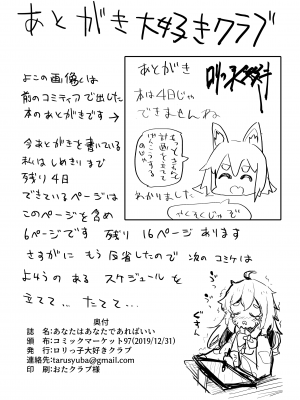 あとがき大好きクラブ
よこの画像は
前のコミティアで出した
本のあとがきです→
あとがき
本は4日じゃ
できませんね
もってきちんと
計画を立てて
げんこうする
のじゃ
わかりました
やくそくじゃぞ
今あとがきを書いている
私はしめきりまで
残り4日
できているページは
このページを含め
6ページです 残り 16ページあります
さすがに もう反省したので 次のコミケは
ようの ある スケジュールを
立てて… たてて…
奥付
誌 名:あなたはあなたであればいい
頒 布:コミックマーケット97(2019/12/31)
発 行:ロリっ子大好きクラブ
連絡先:tarusyuba@gmail.com
印 刷:おたクラブ様